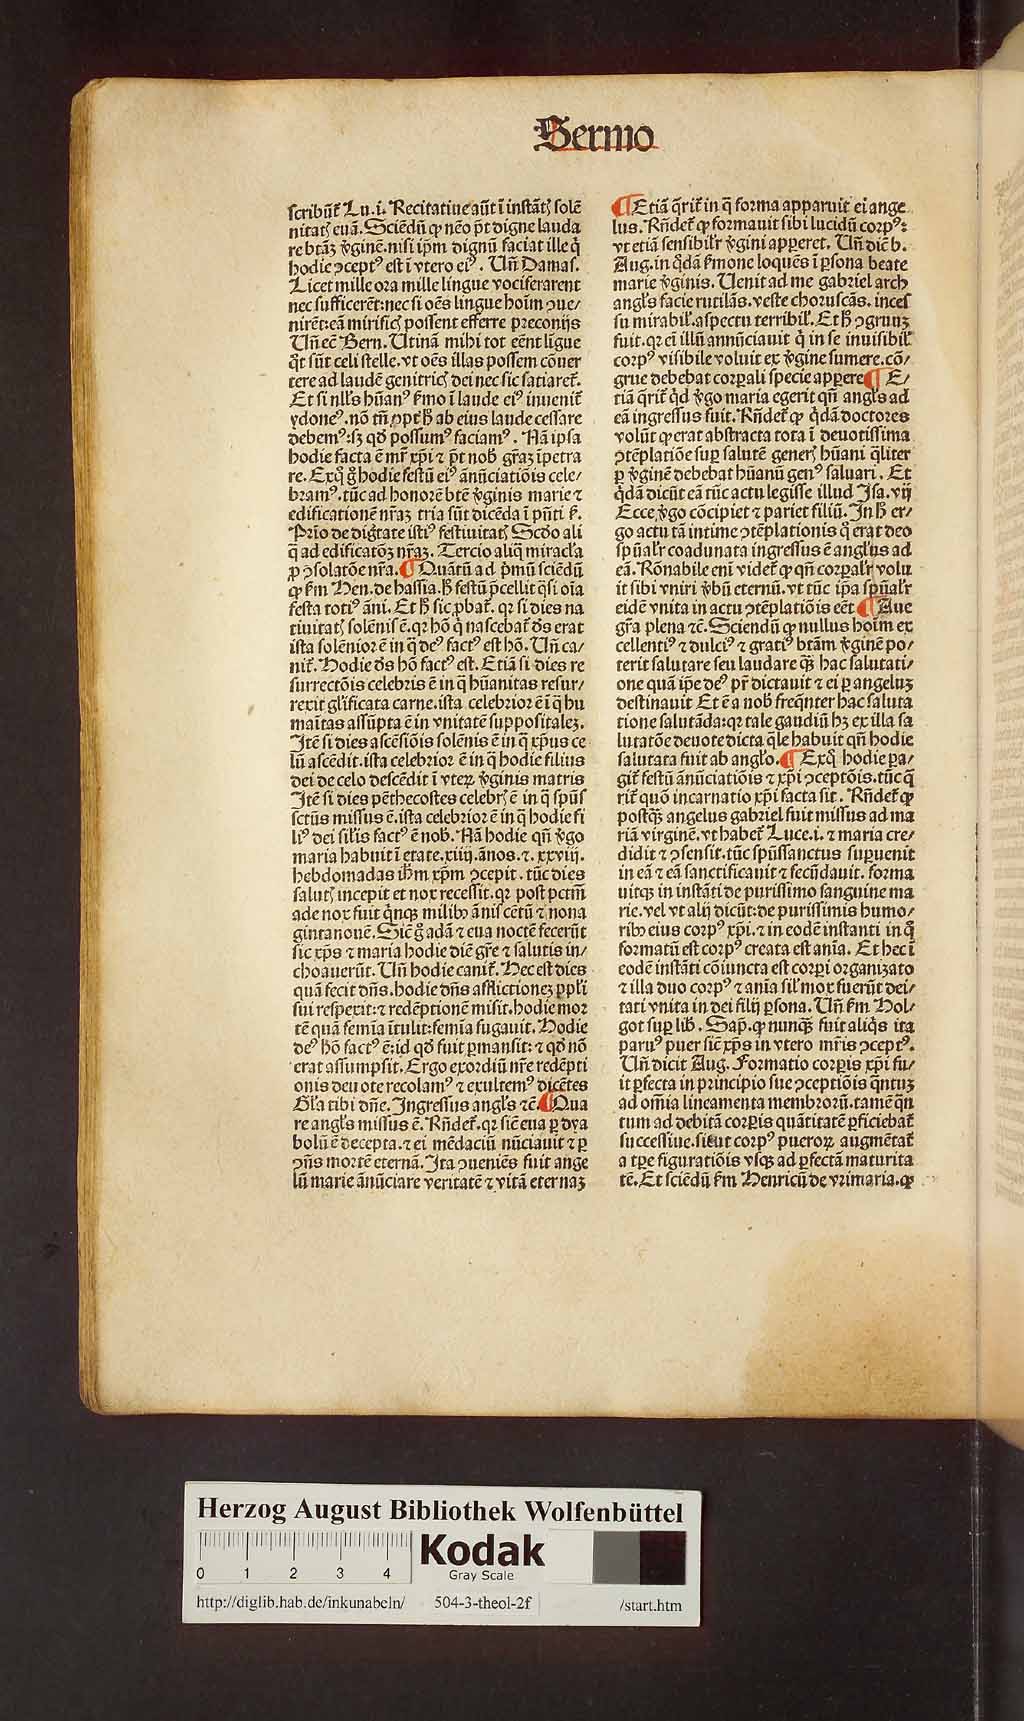 Sermo
scribūt᷑ Lu.i. Recitatiue aūt ī instātꝭ solē
nitatꝭ euā. Sciēdū ꝙ nēo p̄t digne lauda
re btāꝫ v̓ginē. nisi ip̄m dignū faciat ille q̇
hodie ꝯceptꝰ est ī vtero eiꝰ. Un̄ Damas.
Licet mille ora mille lingue vociferarent
nec sufficerēt: nec si oēs lingue hoīm ꝯue⸗
nirēt: eā mirificꝭ possent efferre preconijs
Un̄ eē Bern. Utinā mihi tot eēnt līgue
q̄t sūt celi stelle. vt oēs illas possem cōuer
tere ad laudē genitricꝭ dei nec sic satiaret᷑.
Et si nll's hūanꝰ s̓mo ī laude eiꝰ inuenit᷑
ydoneꝰ. nō tn̄ ꝓpt̓ h̄ ab eius laude cessare
debemꝰ: sꝫ qd̓ possumꝰ faciamꝰ. Nā ipsa
hodie facta ē mr̄ xp̄i ⁊ p̄t nob̓ gr̄aꝫ īpetra
re. Exq̇ g̊ hodie festū eiꝰ ānūciatiōis cele⸗
bramꝰ. tūc ad honorē btē v̓ginis marie ⁊
edificationē nr̄aꝫ tria sūt dicēda ī pn̄ti s̓.
Prīo de dig̓tate istiꝰ festiuitatꝭ Scd̓o ali
q̄ ad edificatōꝫ nr̄aꝫ. Tercio aliq̄ miracl̓a
ꝓ ꝯsolatōe nr̄a. ¶ Quātū ad p̓mū sciēdū
ꝙ s̓m Hen. de hassia. h̄ festū p̄cellit q̄si oīa
festa totiꝰ āni. Et h̄ sic ꝓbat᷑. qꝛ si dies na
tiuitatꝭ solēnis ē. qꝛ hō q̇ nascebat᷑ d̓s erat
ista solēnior ē in q̄ deꝰ factꝰ est hō. Un̄ ca⸗
nit᷑. Hodie d̓s hō factꝰ est. Etiā si dies re
surrectōis celebris ē in q̄ hūanitas resur⸗
rexit gl̓ificata carne. ista celebrior ē ī q̄ hu
maītas assūpta ē in vnitatē suppositaleꝫ.
Itē si dies ascēsiōis solēnis ē in q̄ xp̄us ce
lū ascēdit. ista celebrior ē in q̄ hodie filius
dei de celo descēdit ī vteꝝ v̓ginis matris
Itē si dies pēthecostes celebrꝭ ē in q̄ sp̄us
sctūs missus ē. ista celebrior ē in q̄ hodie fi
liꝰ dei sil̓is factꝰ ē nob̓. Nā hodie qn̄ v̓go
maria habuit ī etate. xiiij. ānos. ⁊. xxviij.
hebdomadas ih̄m xp̄m ꝯcepit. tūc dies
salutꝭ incepit et nox recessit. qꝛ post pctm̄
ade nox fuit q̇nqꝫ milibꝰ ānis cētū ⁊ nona
gintanouē. Sic̄ g̊ adā ⁊ eua noctē fecerūt
sic xp̄s ⁊ maria hodie diē gr̄e ⁊ salutis in⸗
choauerūt. Un̄ hodie canit᷑. Hec est dies
quā fecit dn̄s. hodie dn̄s afflictioneꝫ ppl̓i
sui respexit: ⁊ redēptionē misit. hodie mor
tē quā femīa ītulit: femīa fugauit. Hodie
deꝰ hō factꝰ ē: id qd̓ fuit ꝑmansit: ⁊ qd̓ nō
erat assumpsit. Ergo exordiū nr̄e redēpti
onis deuote recolamꝰ ⁊ exultemꝰ dicētes
Gl̓a tibi dn̄e. Ingressus angl̓s ⁊c̄. ¶ Qua
re angl̓s missus ē. Rn̄det᷑. qꝛ sic̄ eua ꝑ dya
bolū ē decepta. ⁊ ei mēdaciū nūciauit ⁊ ꝑ
ꝯn̄s mortē eternā. Ita ꝯueniēs fuit ange
lū marie ānūciare veritatē ⁊ vitā eternaꝫ
¶ Etiā q̄rit᷑ in q̄ forma apparuit ei ange
lus. Rn̄det᷑ ꝙ formauit sibi lucidū corpꝰ:
vt etiā sensibilr̓ v̓gini apꝑeret. Un̄ diē b.
Aug. in q̄dā s̓mone loquēs ī ꝑsona beate
marie v̓ginis. Uenit ad me gabriel arch
angl̓s facie rutilās. veste choruscās. inces
su mirabil̓. aspectu terribil̓. Et h̄ ꝯgruuꝫ
fuit. qꝛ ei illū annūciauit q̇ in se inuisibil̓
corpꝰ visibile voluit ex v̓gine sumere. cō⸗
grue debebat corꝑali specie apꝑere ¶ E⸗
tiā q̄rit᷑ qd̓ v̓go maria egerit qn̄ angl̓s ad
eā ingressus fuit. Rn̄det᷑ ꝙ q̇dā doctores
volūt ꝙ erat abstracta tota ī deuotissima
ꝯtēplatiōe suꝑ salutē generꝭ hūani q̄liter
ꝑ v̓ginē debebat hūanū genꝰ saluari. Et
q̇dā dicūt eā tūc actu legisse illud Isa. vij
Ecce v̓go cōcipiet ⁊ pariet filiū. In h̄ er⸗
go actu tā intime ꝯtēplationis q̄ erat deo
sp̄ualr̓ coadunata ingressus ē anglus ad
eā. Rōnabile eni videt᷑ ꝙ qn̄ corꝑalr̓ volu
it sibi vniri v̓bū eternū. vt tūc ip̄a sp̄ualr̓
eidē vnita in actu ꝯtēplatiōis eēt ¶ Aue
gr̄a plena ⁊c̄. Sciendū ꝙ nullus hoīm ex
cellentiꝰ ⁊ dulciꝰ ⁊ gratiꝰ btām v̓ginē po⸗
terit salutare seu laudare q̄ꝫ hac salutati⸗
one quā ip̄e deꝰ pr̄ dictauit ⁊ ei ꝑ angeluꝫ
destinauit Et ē a nob̓ freq̄nter hac saluta
tione salutāda: qꝛ tale gaudiū hꝫ ex illa sa
lutatōe deuote dicta q̄le habuit qn̄ hodie
salutata fuit ab angl̓o. ¶ Exq̇ hodie ꝑa⸗
git᷑ festū ānūciatiōis ⁊ xp̄i ꝯceptōis. tūc q̄
rit᷑ quō incarnatio xp̄i facta sit. Rn̄det᷑ ꝙ
postq̄ꝫ angelus gabriel fuit missus ad ma
riā virginē. vt habet᷑ Luce. i. ⁊ maria cre⸗
didit ⁊ ꝯsensit. tūc sp̄ussanctus suꝑuenit
in eā ⁊ eā sanctificauit ⁊ fecūdauit. forma
uitqꝫ in instāti de purissimo sanguine ma
rie. vel vt alij dicūt: de purissimis humo⸗
ribꝰ eius corpꝰ xp̄i. ⁊ in eodē instanti in q̄
formatū est corpꝰ creata est anīa. Et hec ī
eodē instāti cōiuncta est corꝑi organizato
⁊ illa duo corpꝰ ⁊ anīa sil̓ mox fuerūt dei⸗
tati vnita in dei filij ꝑsona. Un̄ s̓m Hol⸗
got suꝑ lib̓. Sap̄. ꝙ nunq̄ꝫ fuit aliq̇s ita
paruꝰ puer sic̄ xp̄s in vtero mr̄is ꝯceptꝰ.
Un̄ dicit Aug. Formatio corꝑis xp̄i fu⸗
it ꝑfecta in principio sue ꝯceptiōis q̄ntuꝫ
ad om̄ia lineamenta membrorū. tamē q̄n
tum ad debitā corꝑis quātitatē ꝑficiebat᷑
successiue. sicut corpꝰ pueroꝝ augmētat᷑
a tp̄e figuratiōis vsqꝫ ad ꝑfectā maturita
tē. Et sciēdū s̓m Henricū de vrimaria. ꝙ
Herzog August Bibliothek Wolfenbüttel
0 1 2 3 4
Kodak
Gray Scale
http://diglib.hab.de/inkunabeln/ 504-3-theol-2f /start.htm